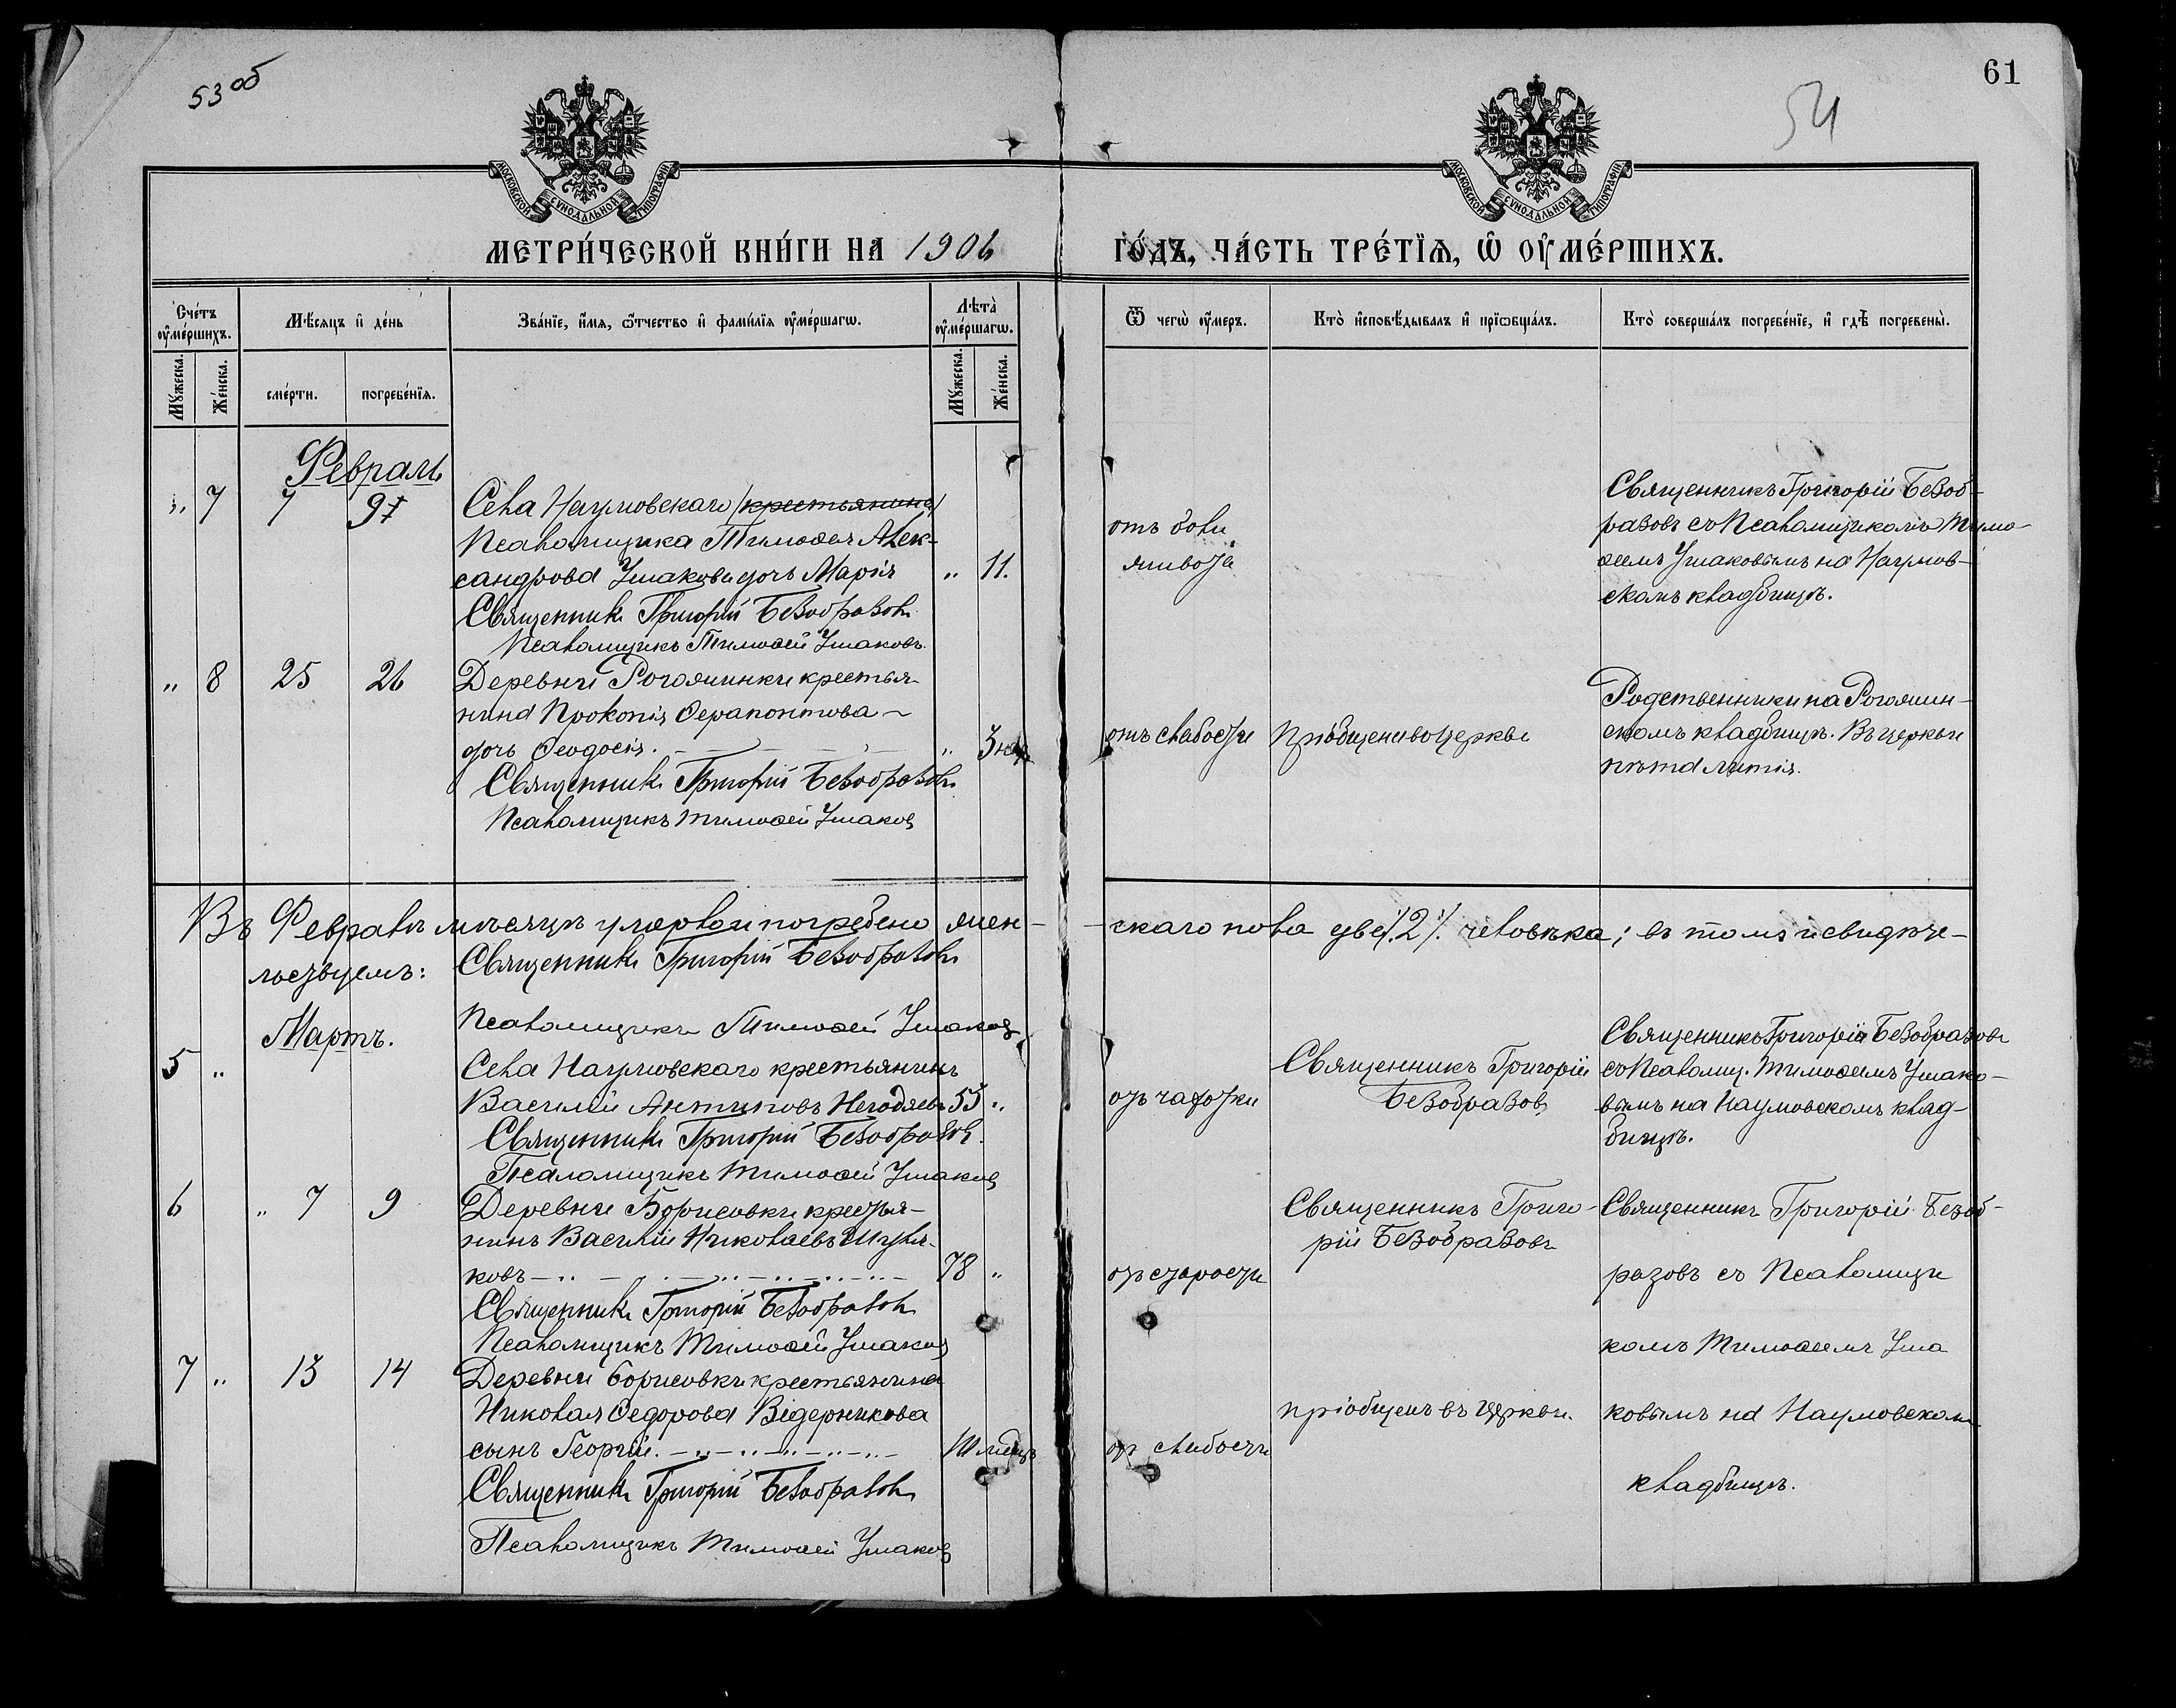 53 об
54
61
МОСКОВСКОЙ СѴНОДАЛЬНОЙ ТИПОГРАФІИ
МОСКОВСКОЙ СѴНОДАЛЬНОЙ ТИПОГРАФІИ
МЕТРИ́ЧЕСКОЙ КНИ́ГИ НА 1906 ГО́ДЪ, ЧА́СТЬ ТРЕ́ТЇѦ, Ѡ ОУ҆МЕ́РШИХЪ.
Сче́тъ оу҆ме́ршихъ.
Мѣ́сяцъ и҆ де́нь
Зва́нїе, и҆́мѧ, ѻ҆́тчество и҆ фами́лїѧ оу҆ме́ршагѡ.
Лѣта̀ оу҆ме́ршагѡ.
Ѿ чегѡ̀ оу҆́меръ.
Кто̀ и҆сповѣ́дывалъ и҆ прїѡбща́лъ.
Кто̀ соверша́лъ погребе́нїе, и҆ гдѣ̀ погребены̀.
Мꙋ́жеска.
Же́нска.
сме́рти.
погребе́нїѧ.
Мꙋ́жеска.
Же́нска.
Февраль
„ 7 7 9
Села Наумовскаго (крестьянина)
Псаломщика Тимоѳея Алек-
сандрова Ушакова дочь Марія „ 11.
Священникъ Григорій Безобразовъ
Псаломщикъ Тимоѳей Ушаковъ.
отъ боли
живота
Священникъ Григорій Безоб-
разовъ съ Псаломщикомъ Тимо-
ѳеемъ Ушаковымъ на Наумов-
скомъ кладбищѣ.
„ 8 25 26
Деревни Рогожинки крестья-
нина Прокопія Ѳерапонтова
дочь Ѳеодосія. „ 3 нед
Священникъ Григорій Безобразовъ
Псаломщикъ Тимоѳей Ушаковъ
отъ слабости
Пріобщена въ Церкви
Родственники на Рогожин-
скомъ кладбищѣ. Въ церкви
пѣта литія.
Въ Февралѣ мѣсяцѣ умерло и погребено жен-
скаго пола два ⁒ 2 ⁒ человѣка; въ томъ и свидѣте-
льствуемъ: Священникъ Григорій Безобразовъ
Псаломщикъ Тимоѳей Ушаковъ
Мартъ.
5 „
Села Наумовскаго крестьянинъ
Василій Антиповъ Негодяевъ 55 „
Священникъ Григорій Безобразовъ.
Псаломщикъ Тимоѳей Ушаковъ
отъ чахотки
Священникъ Григорій
Безобразовъ
Священникъ Григорій Безобразовъ
съ Псаломщ. Тимоѳеемъ Ушако-
вымъ на Наумовскомъ клад-
бищѣ.
6 „ 7 9
Деревни Борисовки крестья-
нинъ Василій Николаевъ Шуля-
ковъ 78 „
Священникъ Григорій Безобразовъ
Псаломщикъ Тимоѳей Ушаковъ
отъ старости
Священникъ Григо-
рій Безобразовъ
Священникъ Григорій Безоб-
разовъ съ Псаломщи
комъ Тимоѳеемъ Уша
ковымъ на Наумовскомъ
кладбищѣ.
7 „ 13 14
Деревни Борисовки крестьянина
Николая Ѳедорова Ведерникова
сынъ Георгій.
Священникъ Григорій Безобразовъ
Псаломщикъ Тимоѳей Ушаковъ
отъ слабости
пріобщенъ въ Церкви.